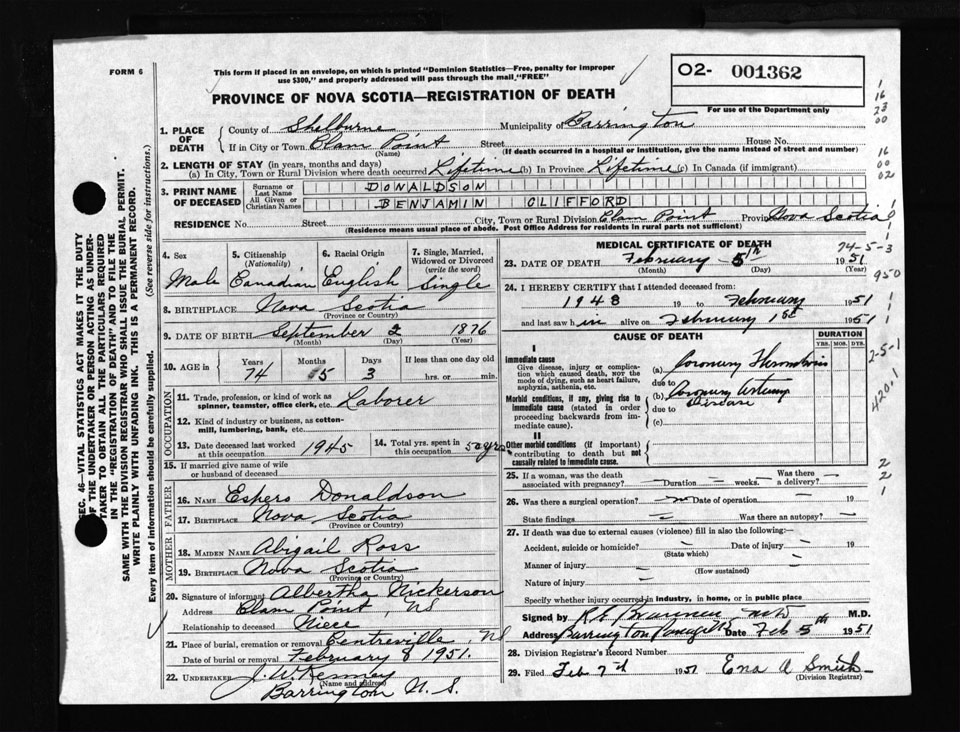 FORM 6
This form if placed in an envelope, on which is printed "Dominion Statistics—Free, penalty for improper
use $300," and properly addressed will pass through the mail, "FREE"
O2- 001362
For use of the Department only
PROVINCE OF NOVA SCOTIA—REGISTRATION OF DEATH
1. PLACE OF DEATH { County of Shelburne Municipality of Barrington
If in City or Town Clam Point Street House No.
(Name) (If death occurred in a hospital or institution, give the name instead of street and number)
2. LENGTH OF STAY (in years, months and days)
(a) In City, Town or Rural Division where death occurred Lifetime (b) In Province Lifetime (c) In Canada (if immigrant)
3. PRINT NAME OF DECEASED { Surname or Last Name DONALDSON
All Given or Christian Names BENJAMIN CLIFFORD
RESIDENCE No. Street City, Town or Rural Division Clam Point Province Nova Scotia
(Residence means usual place of abode. Post Office Address for residents in rural parts not sufficient)
4. Sex 5. Citizenship (Nationality) 6. Racial Origin 7. Single, Married, Widowed or Divorced (write the word)
Male Canadian English Single
8. BIRTHPLACE Nova Scotia
(Province or Country)
9. DATE OF BIRTH September 2 1876
(Month) (Day) (Year)
10. AGE in { Years Months Days If less than one day old
74 5 3 hrs. or min.
OCCUPATION
11. Trade, profession, or kind of work as
spinner, teamster, office clerk, etc. Laborer
12. Kind of industry or business, as cotton-
mill, lumbering, bank, etc.
13. Date deceased last worked
at this occupation 1945
14. Total yrs. spent in
this occupation 50 yrs
15. If married give name of wife
or husband of deceased
FATHER
16. NAME Espero Donaldson
17. BIRTHPLACE Nova Scotia
(Province or Country)
MOTHER
18. MAIDEN NAME Abigail Ross
19. BIRTHPLACE Nova Scotia
(Province or Country)
20. Signature of informant Albertha Nickerson
Address Clam Point, NS
Relationship to deceased Niece
21. Place of burial, cremation or removal Centreville, NS
Date of burial or removal February 8 1951.
22. UNDERTAKER J. W. Kenney
(Name and address)
Barrington N. S.
MEDICAL CERTIFICATE OF DEATH
23. DATE OF DEATH February 5th 1951
(Month) (Day) (Year)
24. I HEREBY CERTIFY that I attended deceased from:
1948 19 to February 1951
and last saw him alive on February 1st 1951
CAUSE OF DEATH
DURATION
YRS. MOS. DYS.
I
Immediate cause
Give disease, injury or complica-
tion which caused death, NOT the
mode of dying, such as heart failure,
asphyxia, asthenia, etc.
(a) Coronary Thrombosis
due to
Morbid conditions, if any, giving rise to
immediate cause (stated in order
proceeding backwards from im-
mediate cause).
(b) Coronary Artery
Disease
due to
(c)
II
Other morbid conditions (if important)
contributing to death but not
causally related to immediate cause.
25. If a woman, was the death
associated with pregnancy? — Duration — weeks. Was there
a delivery? —
26. Was there a surgical operation? no Date of operation — 19
State findings — Was there an autopsy? —
27. If death was due to external causes (violence) fill in also the following:—
Accident, suicide or homicide? — Date of injury — 19
(State which)
Manner of injury —
(How sustained)
Nature of injury —
Specify whether injury occurred in industry, in home, or in public place
Signed by M.D.
Address Barrington Date Feb 5th 1951
28. Division Registrar's Record Number
29. Filed Feb 7th 1951 Ena A Smith
(Division Registrar)
SEC. 46—VITAL STATISTICS ACT MAKES IT THE DUTY
OF THE UNDERTAKER OR PERSON ACTING AS UNDER-
TAKER TO OBTAIN ALL THE PARTICULARS REQUIRED
IN THE "REGISTRATION OF DEATH" AND TO FILE THE
SAME WITH THE DIVISION REGISTRAR WHO SHALL ISSUE THE BURIAL PERMIT.
WRITE PLAINLY WITH UNFADING INK. THIS IS A PERMANENT RECORD.
Every item of information should be carefully supplied. (See reverse side for instructions.)
1
16
23
00
16
00
02
74-5-3
950
2-5-1
420.1
2
2
1